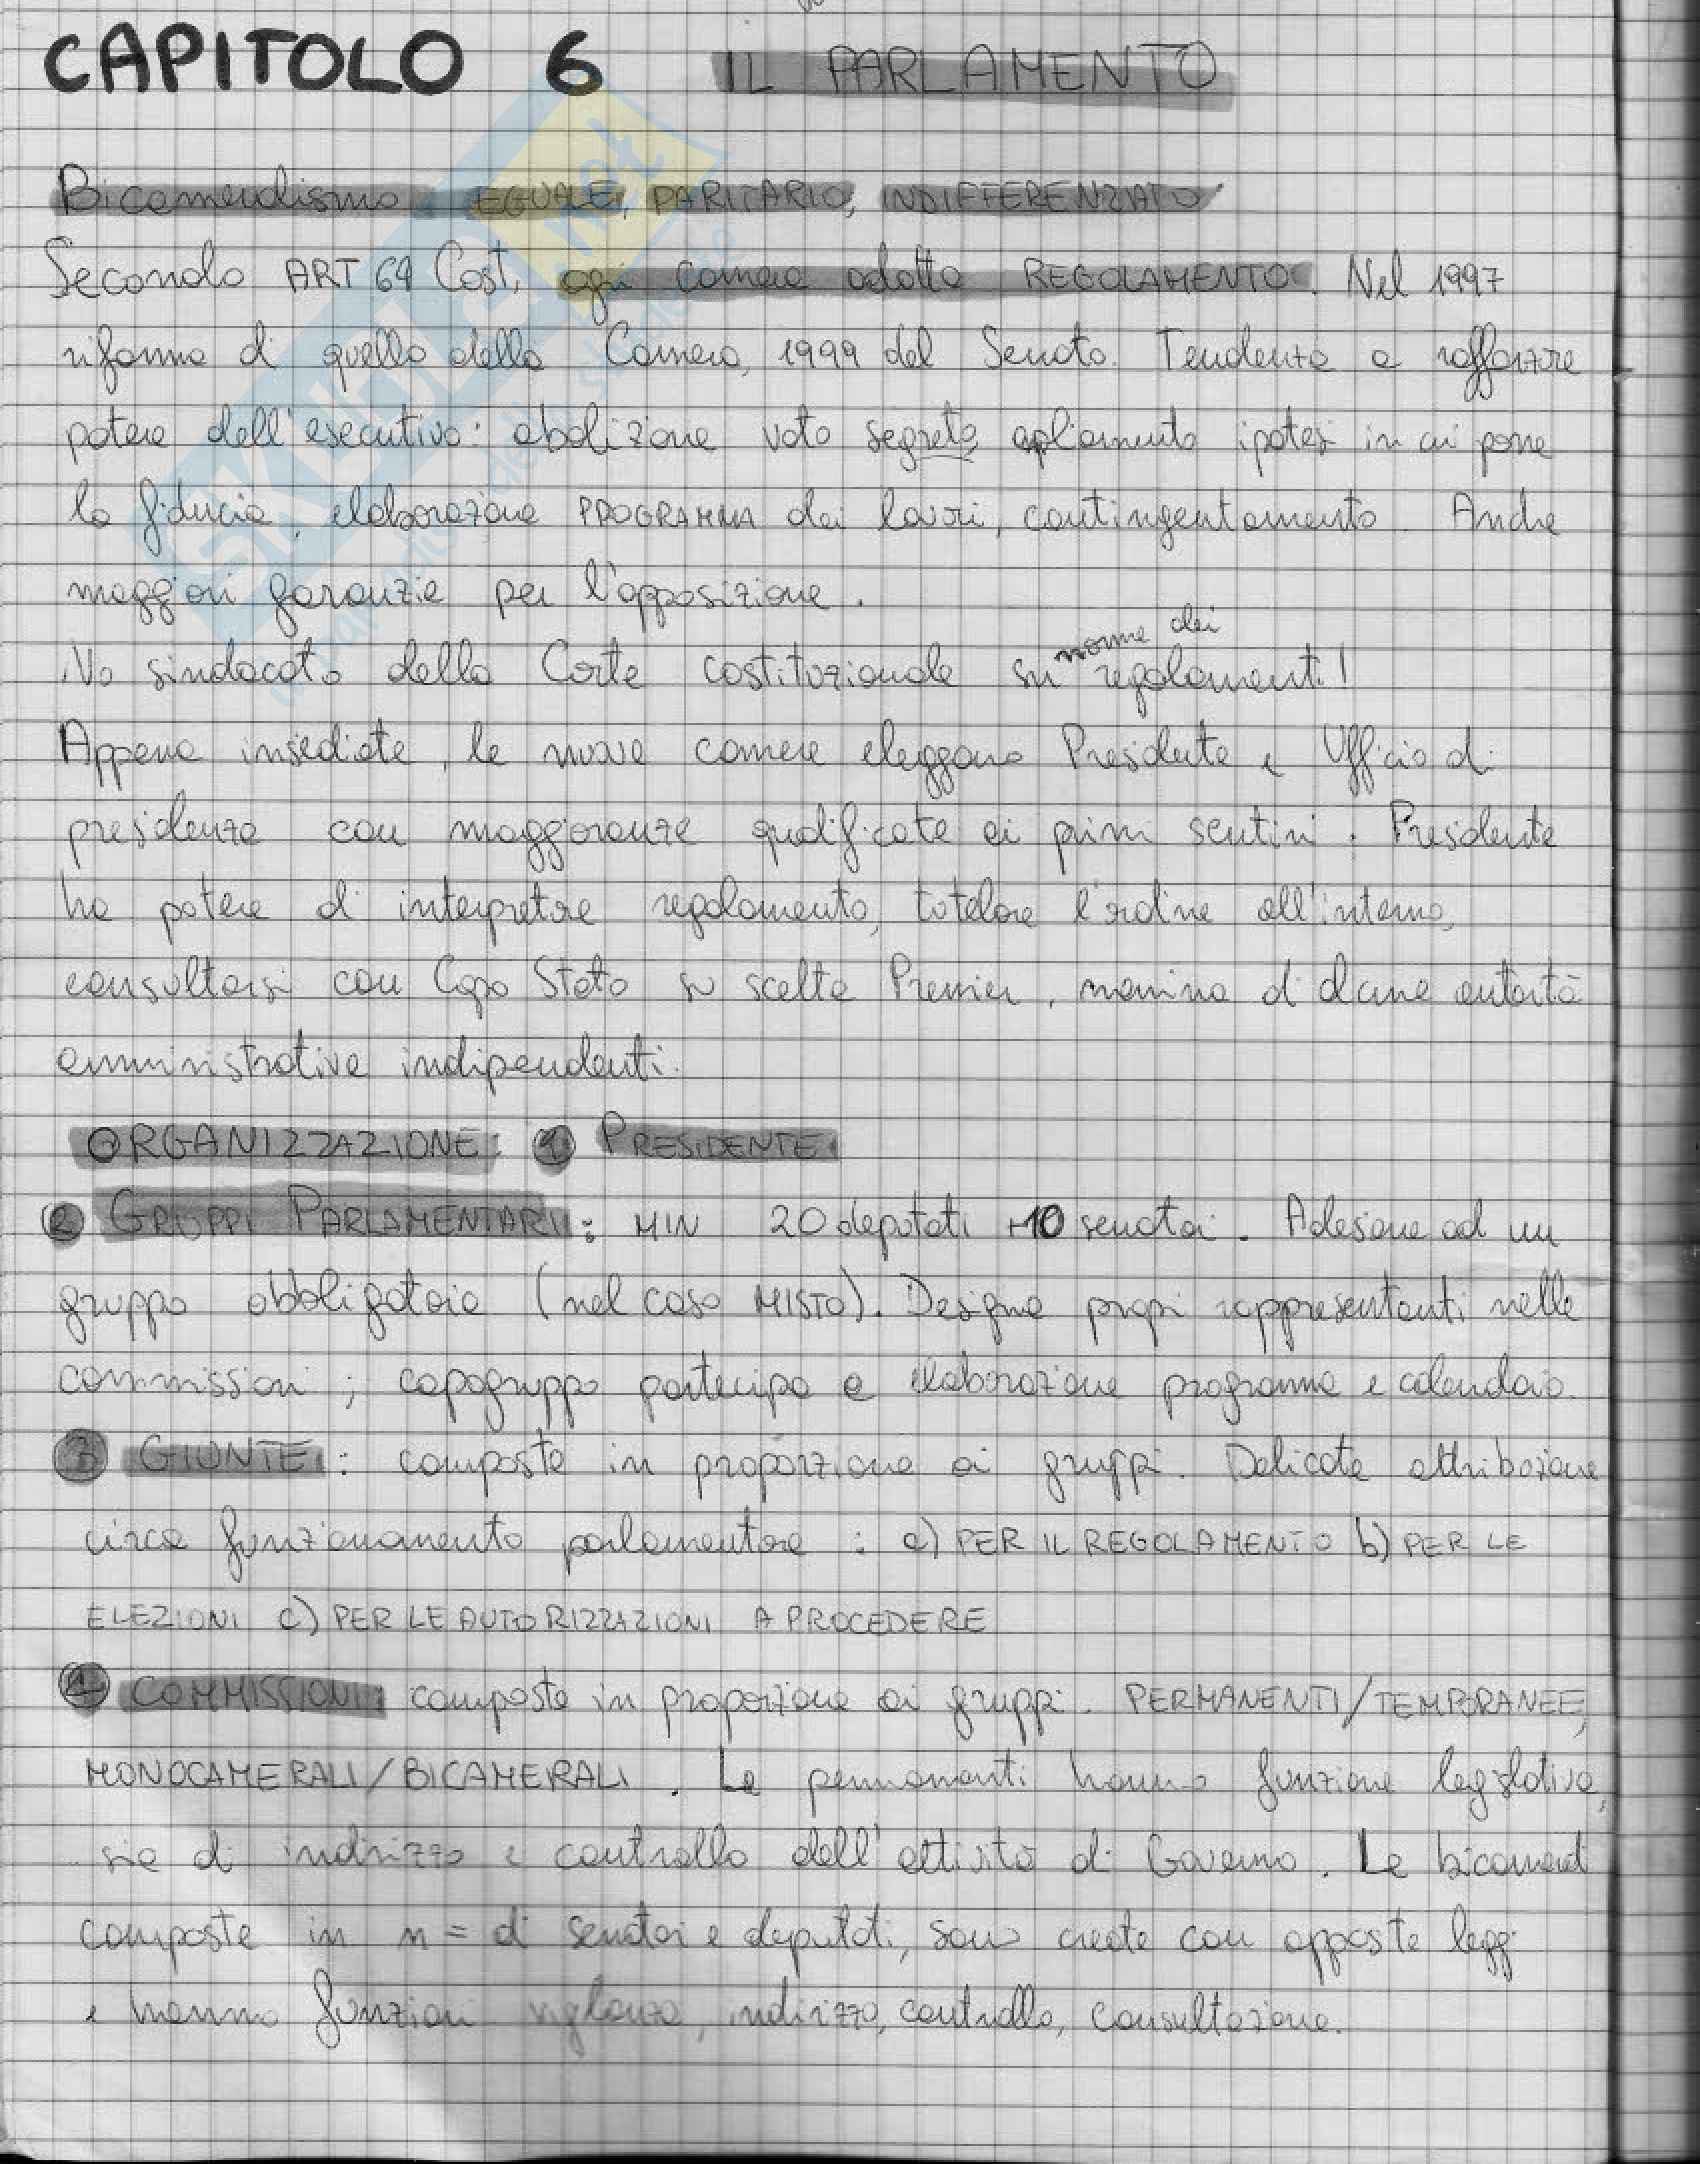 CAPITOLO 6 IL PARLAMENTO
Bicameralismo EGUALE, PARITARIO, INDIFFERENZIATO
Secondo ART 64 Cost, ogni camera adotta REGOLAMENTO. Nel 1997
riforma di quello della Camera, 1999 del Senato. Tendenza a rafforzare
potere dell'esecutivo: abolizione voto segreto, apliamento ipotesi in cui pone
la fiducia, elaborazione PROGRAMMA dei lavori, contingentamento. Anche
maggiori garanzie per l'opposizione.
No sindacato della Corte costituzionale su norme dei regolamenti!
Appena insediate, le nuove camere eleggono Presidente e Ufficio di
presidenza con maggioranze qualificate ai primi scutini. Presidente
ha potere di interpretare regolamento, tutelare l'ordine all'interno,
consultarsi con Capo Stato su scelta Premier, nomina di alcune autorità
amministrative indipendenti.
ORGANIZZAZIONE: 1 PRESIDENTE.
2 GRUPPI PARLAMENTARI: MIN 20 deputati 10 senatori. Adesione ad un
gruppo obbligatoria (nel caso MISTO). Designa propri rappresentanti nelle
commissioni; capogruppo partecipa a elaborazione programma e calendario.
3 GIUNTE: composte in proporzione ai gruppi. Delicate attribuzione
circa funzionamento parlamentare: a) PER IL REGOLAMENTO b) PER LE
ELEZIONI c) PER LE AUTORIZZAZIONI A PROCEDERE
4 COMMISSIONI: composte in proporzione ai gruppi. PERMANENTI/TEMPORANEE,
MONOCAMERALI/BICAMERALI. Le permanenti hanno funzione legislativa,
sia di indirizzo e controllo dell'attività di Governo. Le bicamerali
composte in n= di senatori e deputati, sono create con apposite leggi
e hanno funzioni vigilanza, indirizzo, controllo, consultazione.
SKUOLA.net